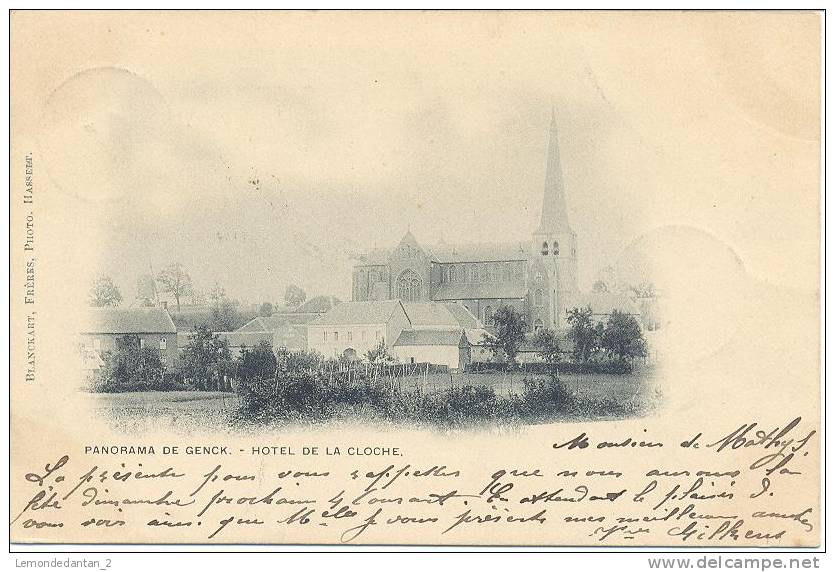 BLANCKART, FRÈRES, PHOTO. HASSELT.
PANORAMA DE GENCK. - HOTEL DE LA CLOCHE.
Monsieur de Mathys.
La présente pour vous rappeller que nous aurons la
fête dimanche prochain 4 courant. En attendant le plaisir d.
vous voir ainsi que Melle je vous présente mes meilleures amitiés
Gilkens
Lemondedantan_2
http://www.delcampe.net